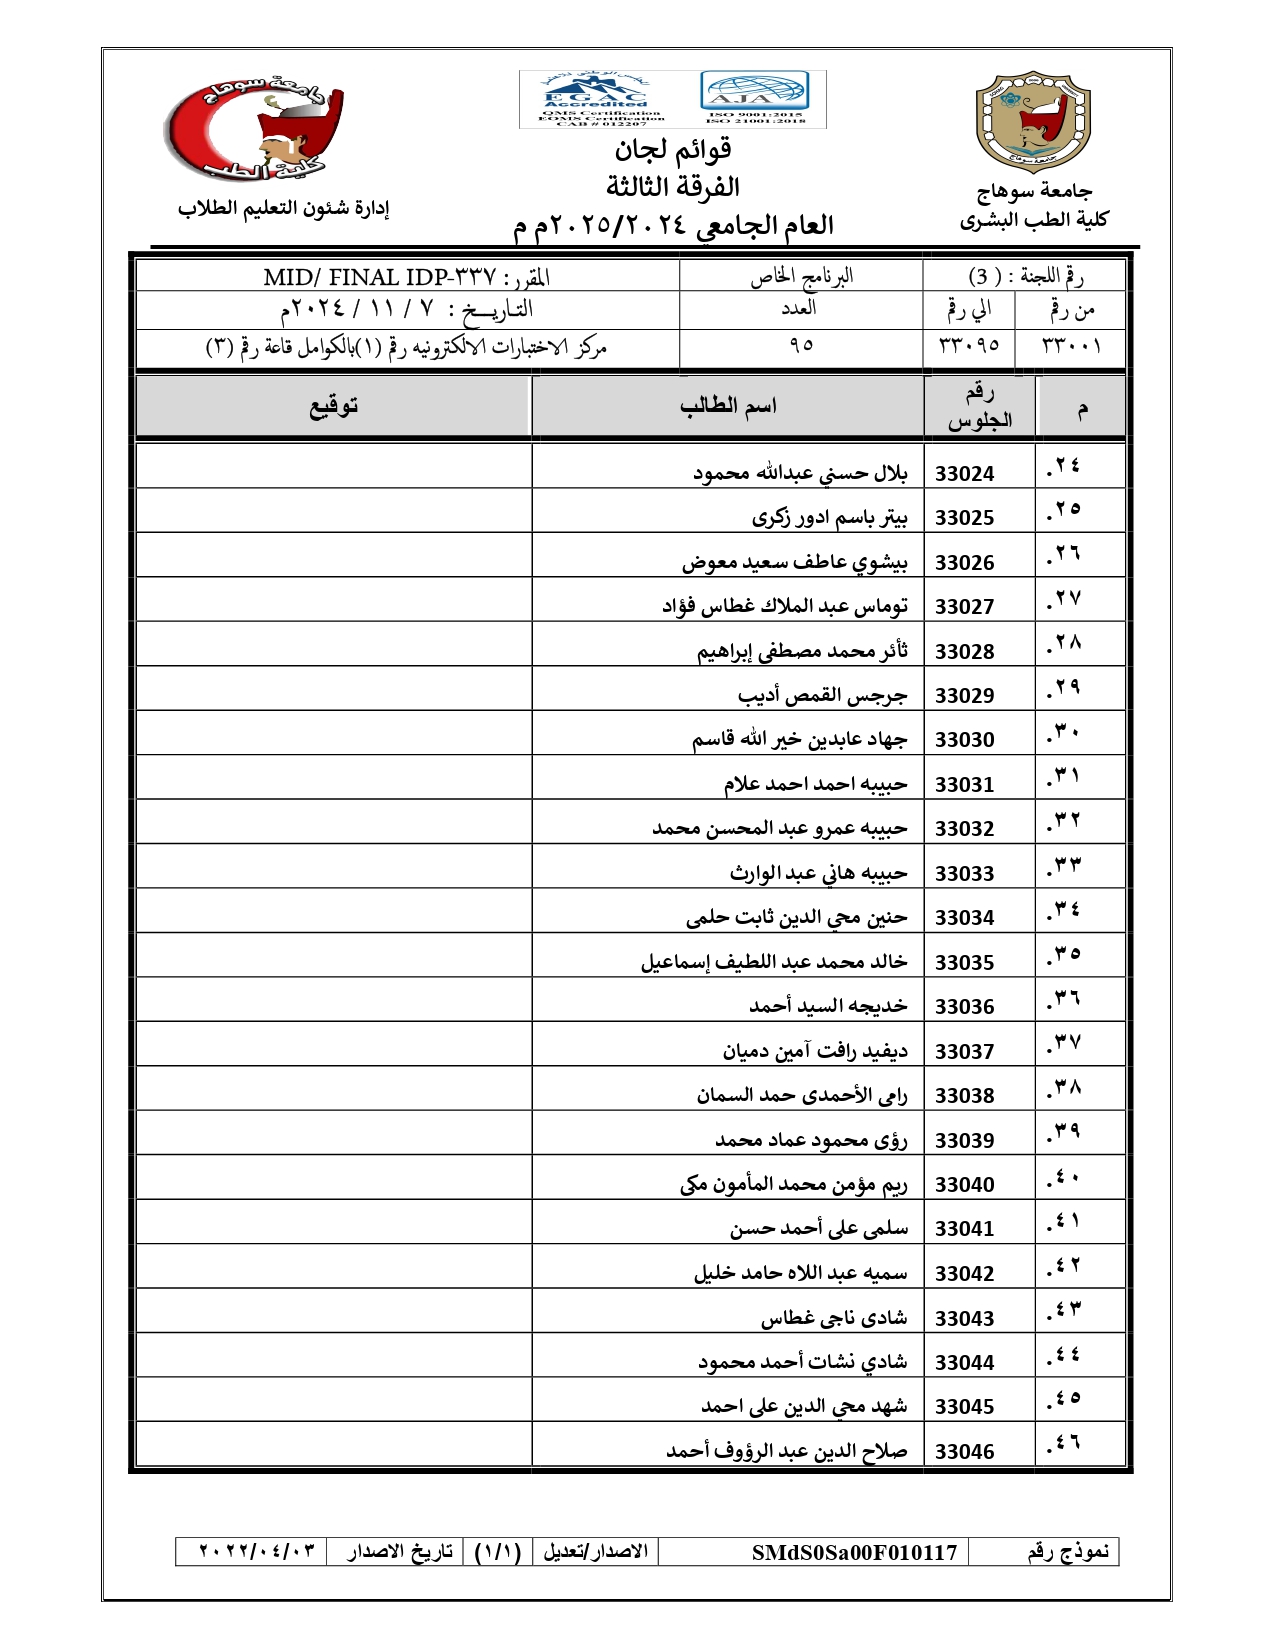 جامعة سوهاج
كلية الطب
إدارة شئون التعليم الطلاب
المجلس الوطني للاعتماد
EGAC
Accredited
QMS Certification
EOMS Certification
CAB # 012207
AJA
ISO 9001:2015
ISO 21001:2018
قوائم لجان
الفرقة الثالثة
العام الجامعي ٢٠٢٥/٢٠٢٤م م
جامعة سوهاج
جامعة سوهاج
كلية الطب البشرى
رقم اللجنة : ( 3) البرنامج الخاص المقرر: MID/ FINAL IDP-٣٣٧
من رقم الي رقم العدد التـاريـــخ : ٧ / ١١ / ٢٠٢٤م
٣٣٠٠١ ٣٣٠٩٥ ٩٥ مركز الاختبارات الالكترونيه رقم (١)بالكوامل قاعة رقم (٣)
م رقم الجلوس اسم الطالب توقيع
٢٤. 33024 بلال حسني عبدالله محمود
٢٥. 33025 بيتر باسم ادور زكرى
٢٦. 33026 بيشوي عاطف سعيد معوض
٢٧. 33027 توماس عبد الملاك غطاس فؤاد
٢٨. 33028 ثأئر محمد مصطفى إبراهيم
٢٩. 33029 جرجس القمص أديب
٣٠. 33030 جهاد عابدين خير الله قاسم
٣١. 33031 حبيبه احمد احمد علام
٣٢. 33032 حبيبه عمرو عبد المحسن محمد
٣٣. 33033 حبيبه هاني عبد الوارث
٣٤. 33034 حنين محي الدين ثابت حلمى
٣٥. 33035 خالد محمد عبد اللطيف إسماعيل
٣٦. 33036 خديجه السيد أحمد
٣٧. 33037 ديفيد رافت آمين دميان
٣٨. 33038 رامى الأحمدى حمد السمان
٣٩. 33039 رؤى محمود عماد محمد
٤٠. 33040 ريم مؤمن محمد المأمون مكى
٤١. 33041 سلمى على أحمد حسن
٤٢. 33042 سميه عبد اللاه حامد خليل
٤٣. 33043 شادى ناجى غطاس
٤٤. 33044 شادي نشات أحمد محمود
٤٥. 33045 شهد محي الدين على احمد
٤٦. 33046 صلاح الدين عبد الرؤوف أحمد
نموذج رقم SMdS0Sa00F010117 الاصدار/تعديل (١/١) تاريخ الاصدار ٢٠٢٢/٠٤/٠٣